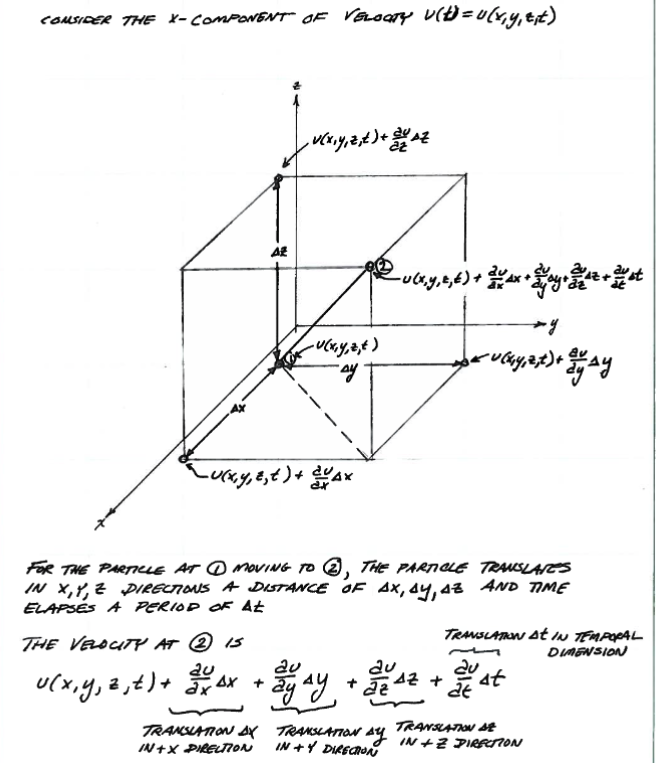 CONSIDER THE X-COMPONENT OF VELOCITY U(t) = U(x,y,z,t)
z
U(x,y,z,t) + ∂U/∂z Δz
Δz
②
U(x,y,z,t) + ∂U/∂x Δx + ∂U/∂y Δy + ∂U/∂z Δz + ∂U/∂t Δt
y
① U(x,y,z,t)
Δy
U(x,y,z,t) + ∂U/∂y Δy
Δx
U(x,y,z,t) + ∂U/∂x Δx
x
FOR THE PARTICLE AT ① MOVING TO ②, THE PARTICLE TRANSLATES
IN X, Y, Z DIRECTIONS A DISTANCE OF Δx, Δy, Δz AND TIME
ELAPSES A PERIOD OF Δt
THE VELOCITY AT ② IS
TRANSLATION Δt IN TEMPORAL
DIMENSION
U(x,y,z,t) + ∂U/∂x Δx + ∂U/∂y Δy + ∂U/∂z Δz + ∂U/∂t Δt
TRANSLATION Δx
IN +X DIRECTION
TRANSLATION Δy
IN +Y DIRECTION
TRANSLATION Δz
IN +Z DIRECTION